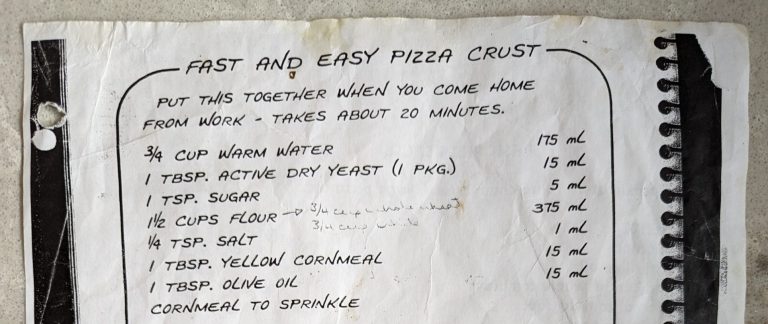 FAST AND EASY PIZZA CRUST
PUT THIS TOGETHER WHEN YOU COME HOME
FROM WORK - TAKES ABOUT 20 MINUTES.
3/4 CUP WARM WATER 175 mL
1 TBSP. ACTIVE DRY YEAST (1 PKG.) 15 mL
1 TSP. SUGAR 5 mL
1 1/2 CUPS FLOUR → 3/4 cup whole wheat 375 mL
3/4 cup white
1/4 TSP. SALT 1 mL
1 TBSP. YELLOW CORNMEAL 15 mL
1 TBSP. OLIVE OIL 15 mL
CORNMEAL TO SPRINKLE